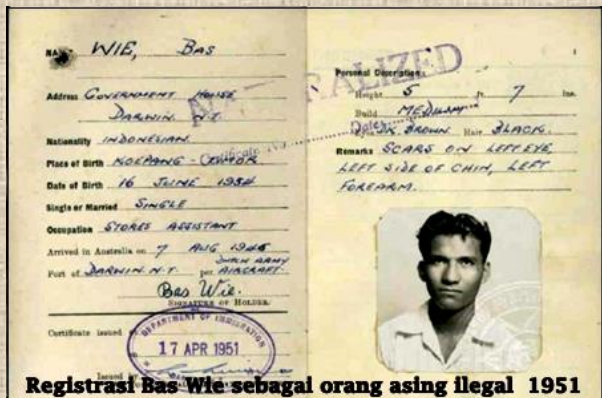 WIE, BAS
Address GOVERNMENT HOUSE
DARWIN. N.T.
Nationality INDONESIAN.
Place of Birth KOEPANG - TIMOR
Date of Birth 16 JUNE 1934
Single or Married SINGLE
Occupation STORES ASSISTANT
Arrived in Australia on 7 AUG 1946
Port of DARWIN. N.T. per DUTCH ARMY AIRCRAFT.
Bas Wie.
SIGNATURE OF HOLDER.
Certificate issued
DEPARTMENT OF IMMIGRATION
17 APR 1951
Issued by
1
Personal Description:
Height 5 ft. 7 ins.
Build MEDIUM
Eyes DK. BROWN Hair BLACK.
Remarks SCARS ON LEFT EYE,
LEFT SIDE OF CHIN, LEFT
FOREARM.
Registrasi Bas Wie sebagai orang asing ilegal 1951